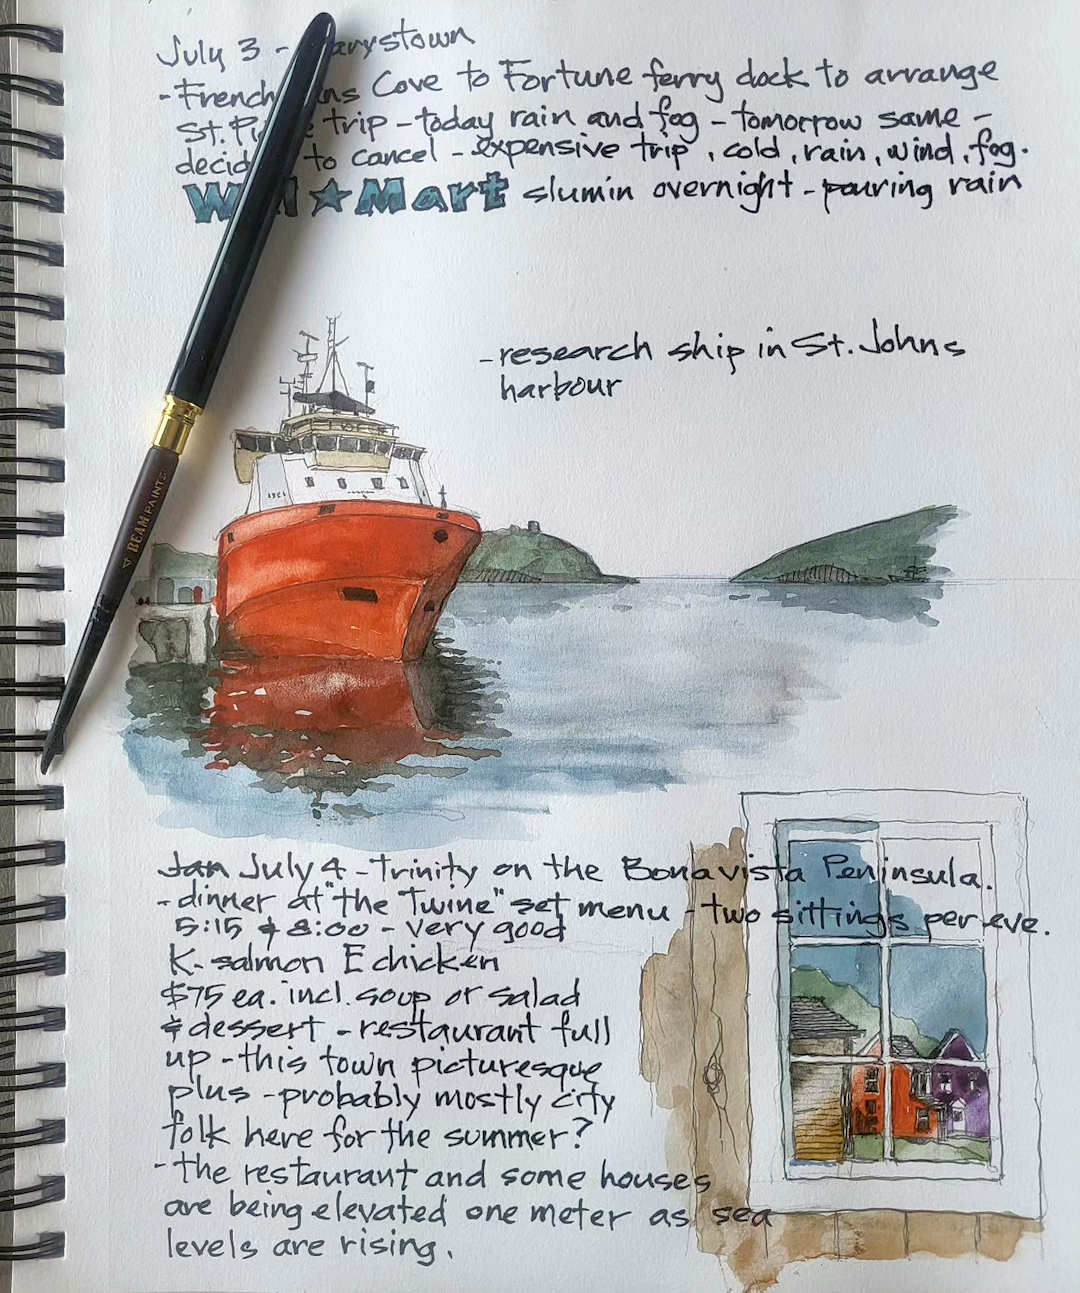 July 3 - Marystown
- Frenchmans Cove to Fortune ferry dock to arrange
St. Pierre trip - today rain and fog - tomorrow same -
decided to cancel - expensive trip, cold, rain, wind, fog.
Wal★Mart slumin overnight - pouring rain
- research ship in St. Johns
harbour
BEAM PAINTS
Jan July 4 - Trinity on the Bonavista Peninsula.
- dinner at "the Twine" set menu - two sittings per eve.
5:15 & 8:00 - very good
K. salmon E chicken
$75 ea. incl. soup or salad
& dessert - restaurant full
up - this town picturesque
plus - probably mostly city
folk here for the summer?
- the restaurant and some houses
are being elevated one meter as sea
levels are rising.